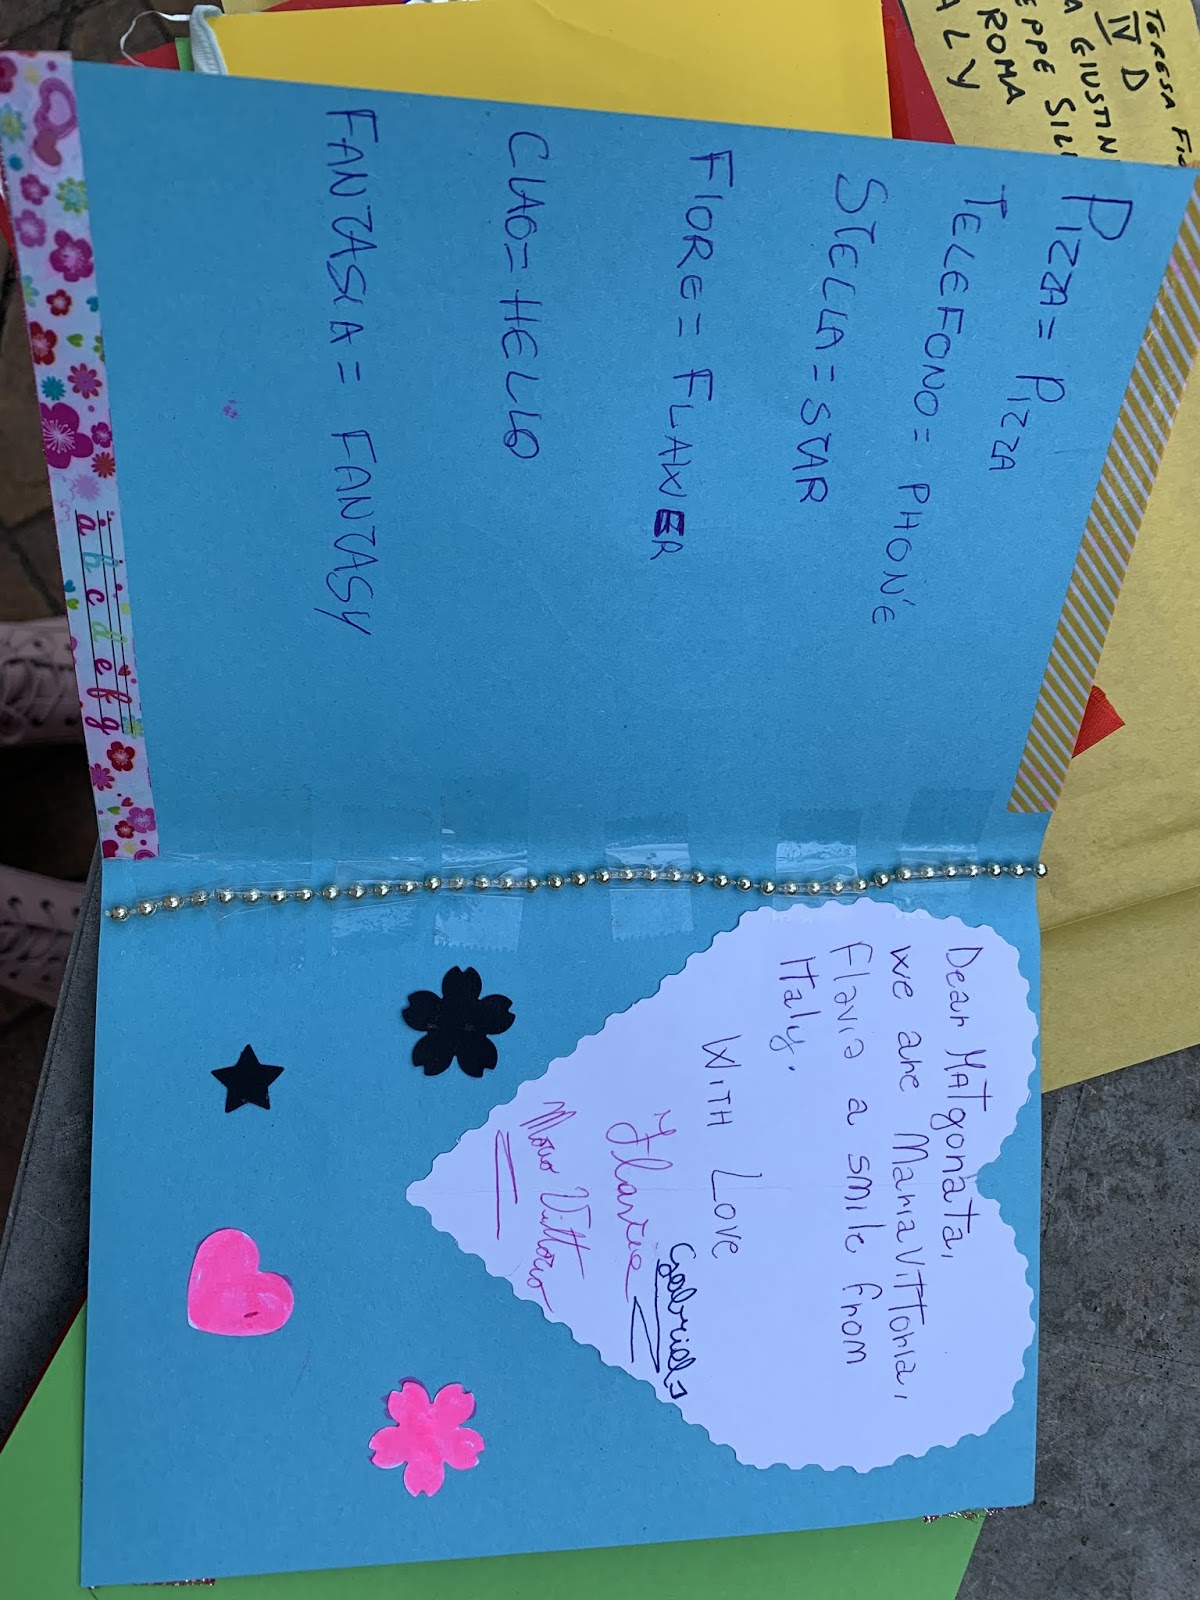 TERESA
IV D
GIUSTIN
EPPE SIL
ROMA
ALY
PIZZA = PIZZA
TELEFONO = PHONE
STELLA = STAR
FIORE = FLAWER
CIAO = HELLO
FANTASIA = FANTASY
a b c d e f g
Dear MATgonata,
we are Maria Vittoria,
Flavia a smile from
Italy.
WITH LOVE
Gabriel
Flavia